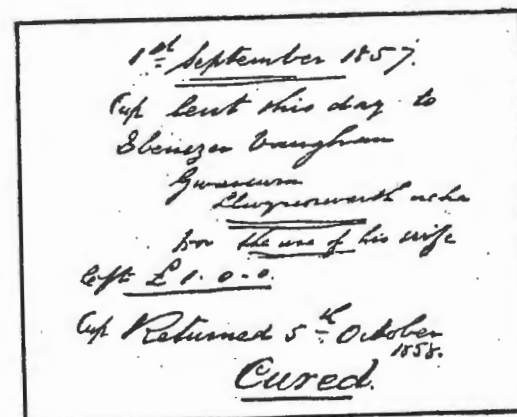 1st September 1857.
Cup lent this day to
Ebenezer Vaughan
for the use of his wife
left £1.0.0.
Cup Returned 5th October
1858.
Cured.